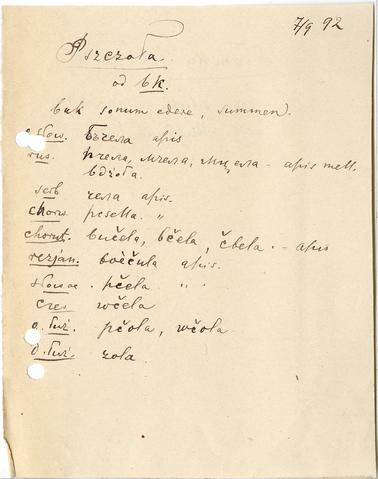 7/9 92
Pszczoła.
od bk.
buk sonum edere, summen.
słow. бъчела apis
rus. пчела, мчела, мцела - apis mell.
вджола.
serb чела apis.
chorw. pcsella "
chorut. bučela, bčela, čbela - apis
rezján. boèčula apis.
słowac. pčela " "
czes wčela
g. łuż. pčola, wčola
d. łuż. zola.